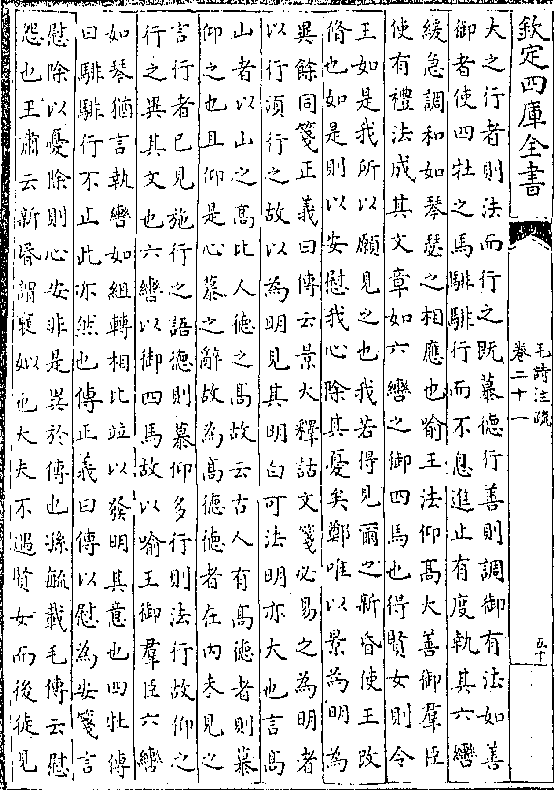 欽定四庫全書
毛詩注疏
卷二十一
五十
大之行者則法而行之既慕德行善則調御有法如善
御者使四牡之馬騑騑行而不息進止有度執其六轡
緩急調和如琴瑟之相應也喻王法仰高大善御羣臣
使有禮法成其文章如六轡之御四馬也得賢女則令
王如是我所以願見之也我若得見爾之新昏使王改
脩也如是則以安慰我心除其憂矣鄭唯以景為明為
異餘同箋正義曰傳云景大釋詁文箋必易之為明者
以行須行之故以為明見其明白可法明亦大也言高
山者以山之高比人德之高故云古人有高德者則慕
仰之也且仰是心慕之辭故為高德德者在内未見之
言行者已見施行之語德則慕仰多行則法行故仰之
行之異其文也六轡以御四馬故以喻王御羣臣六轡
如琴猶言執轡如組轉相比竝以發明其意也四牡傳
曰騑騑行不止此亦然也傳正義曰傳以慰為安箋言
慰除以憂除則心安非是異於傳也孫毓載毛傳云慰
怨也王肅云新昏謂襃姒也大夫不遇賢女而後徒見